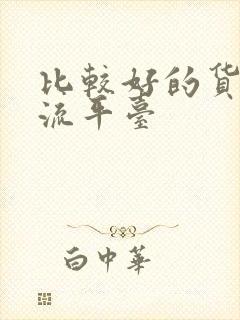 比較好的货
流平臺
白中華